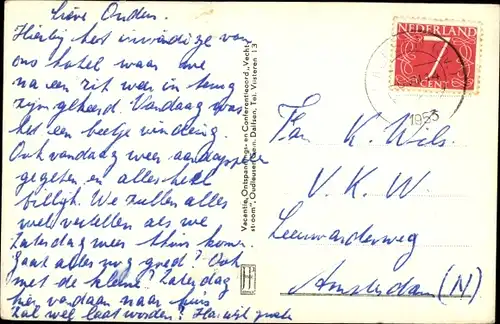 Lieve Ouders.
Hierbij het inwendige van
ons hotel waar we
na een zit weer in terug
zijn gekeerd. Vandaag was
het een beetje winderig.
Ook vandaag weer aardappelen
gegeten en alles heel
billijk. We zullen alles
wel vertellen als we
Zaterdag weer thuis komen.
Gaat alles nog goed? Ook
met de kleine? Zaterdag
hier vandaan naar huis
Zal wel laat worden?
Vacantie, Ontspannings- en Conferentieoord „Vecht-
stroom", Oudleusen Gem. Dalfsen, Tel. Vilsteren 13
H
NEDERLAND
7
CENT
1953
Fam. K. Wils.
V. K. W.
Leeuwarderweg
Amsterdam (N)